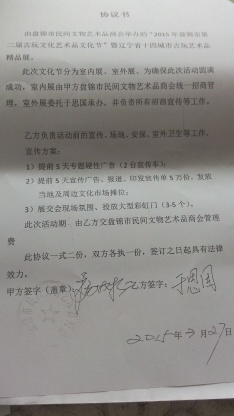 协议书
由盘锦市民间文物艺术品商会举办的“2015年盘锦市第
二届古玩文化艺术品文化节”暨辽宁省十四城市古玩艺术品
精品展。
此次文化节分为室内展、室外展、为确保此次活动圆满
成功，室内展由甲方盘锦市民间文物艺术品商会统一招商管
理，室外展委托于思国承办、并负责所有招商宣传等工作。
乙方负责活动前的宣传、场地、安保、室外卫生等工作。
宣传方案：
1）提前5天专题硬性广告（2台宣传车）
2）提前5天宣传广告、报道、印发宣传单5万份，发放
当地及周边文化市场摊位；
3）展交会现场氛围、投放大型彩虹门（3-5个）。
此次活动期 由乙方交盘锦市民间文物艺术品商会管理
费
此协议一式二份，双方各执一份，签订之日起具有法律
效力。
甲方签字（盖章）： 乙方签字：于思国
2015年3月27日